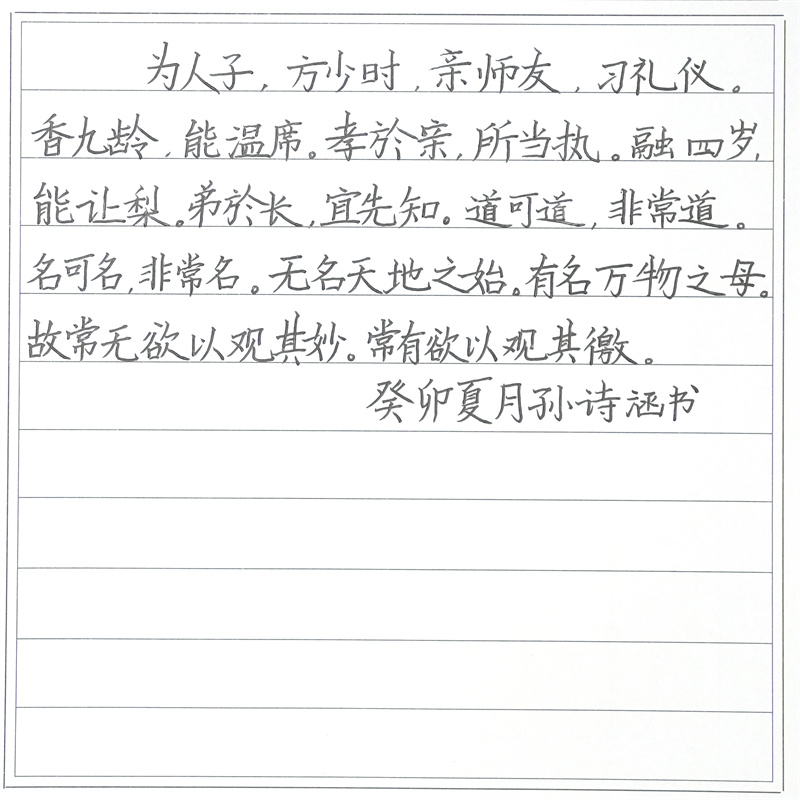 为人子，方少时，亲师友，习礼仪。
香九龄，能温席。孝於亲，所当执。融四岁，
能让梨。弟於长，宜先知。道可道，非常道。
名可名，非常名。无名天地之始。有名万物之母。
故常无欲以观其妙。常有欲以观其徼。
癸卯夏月孙诗涵书